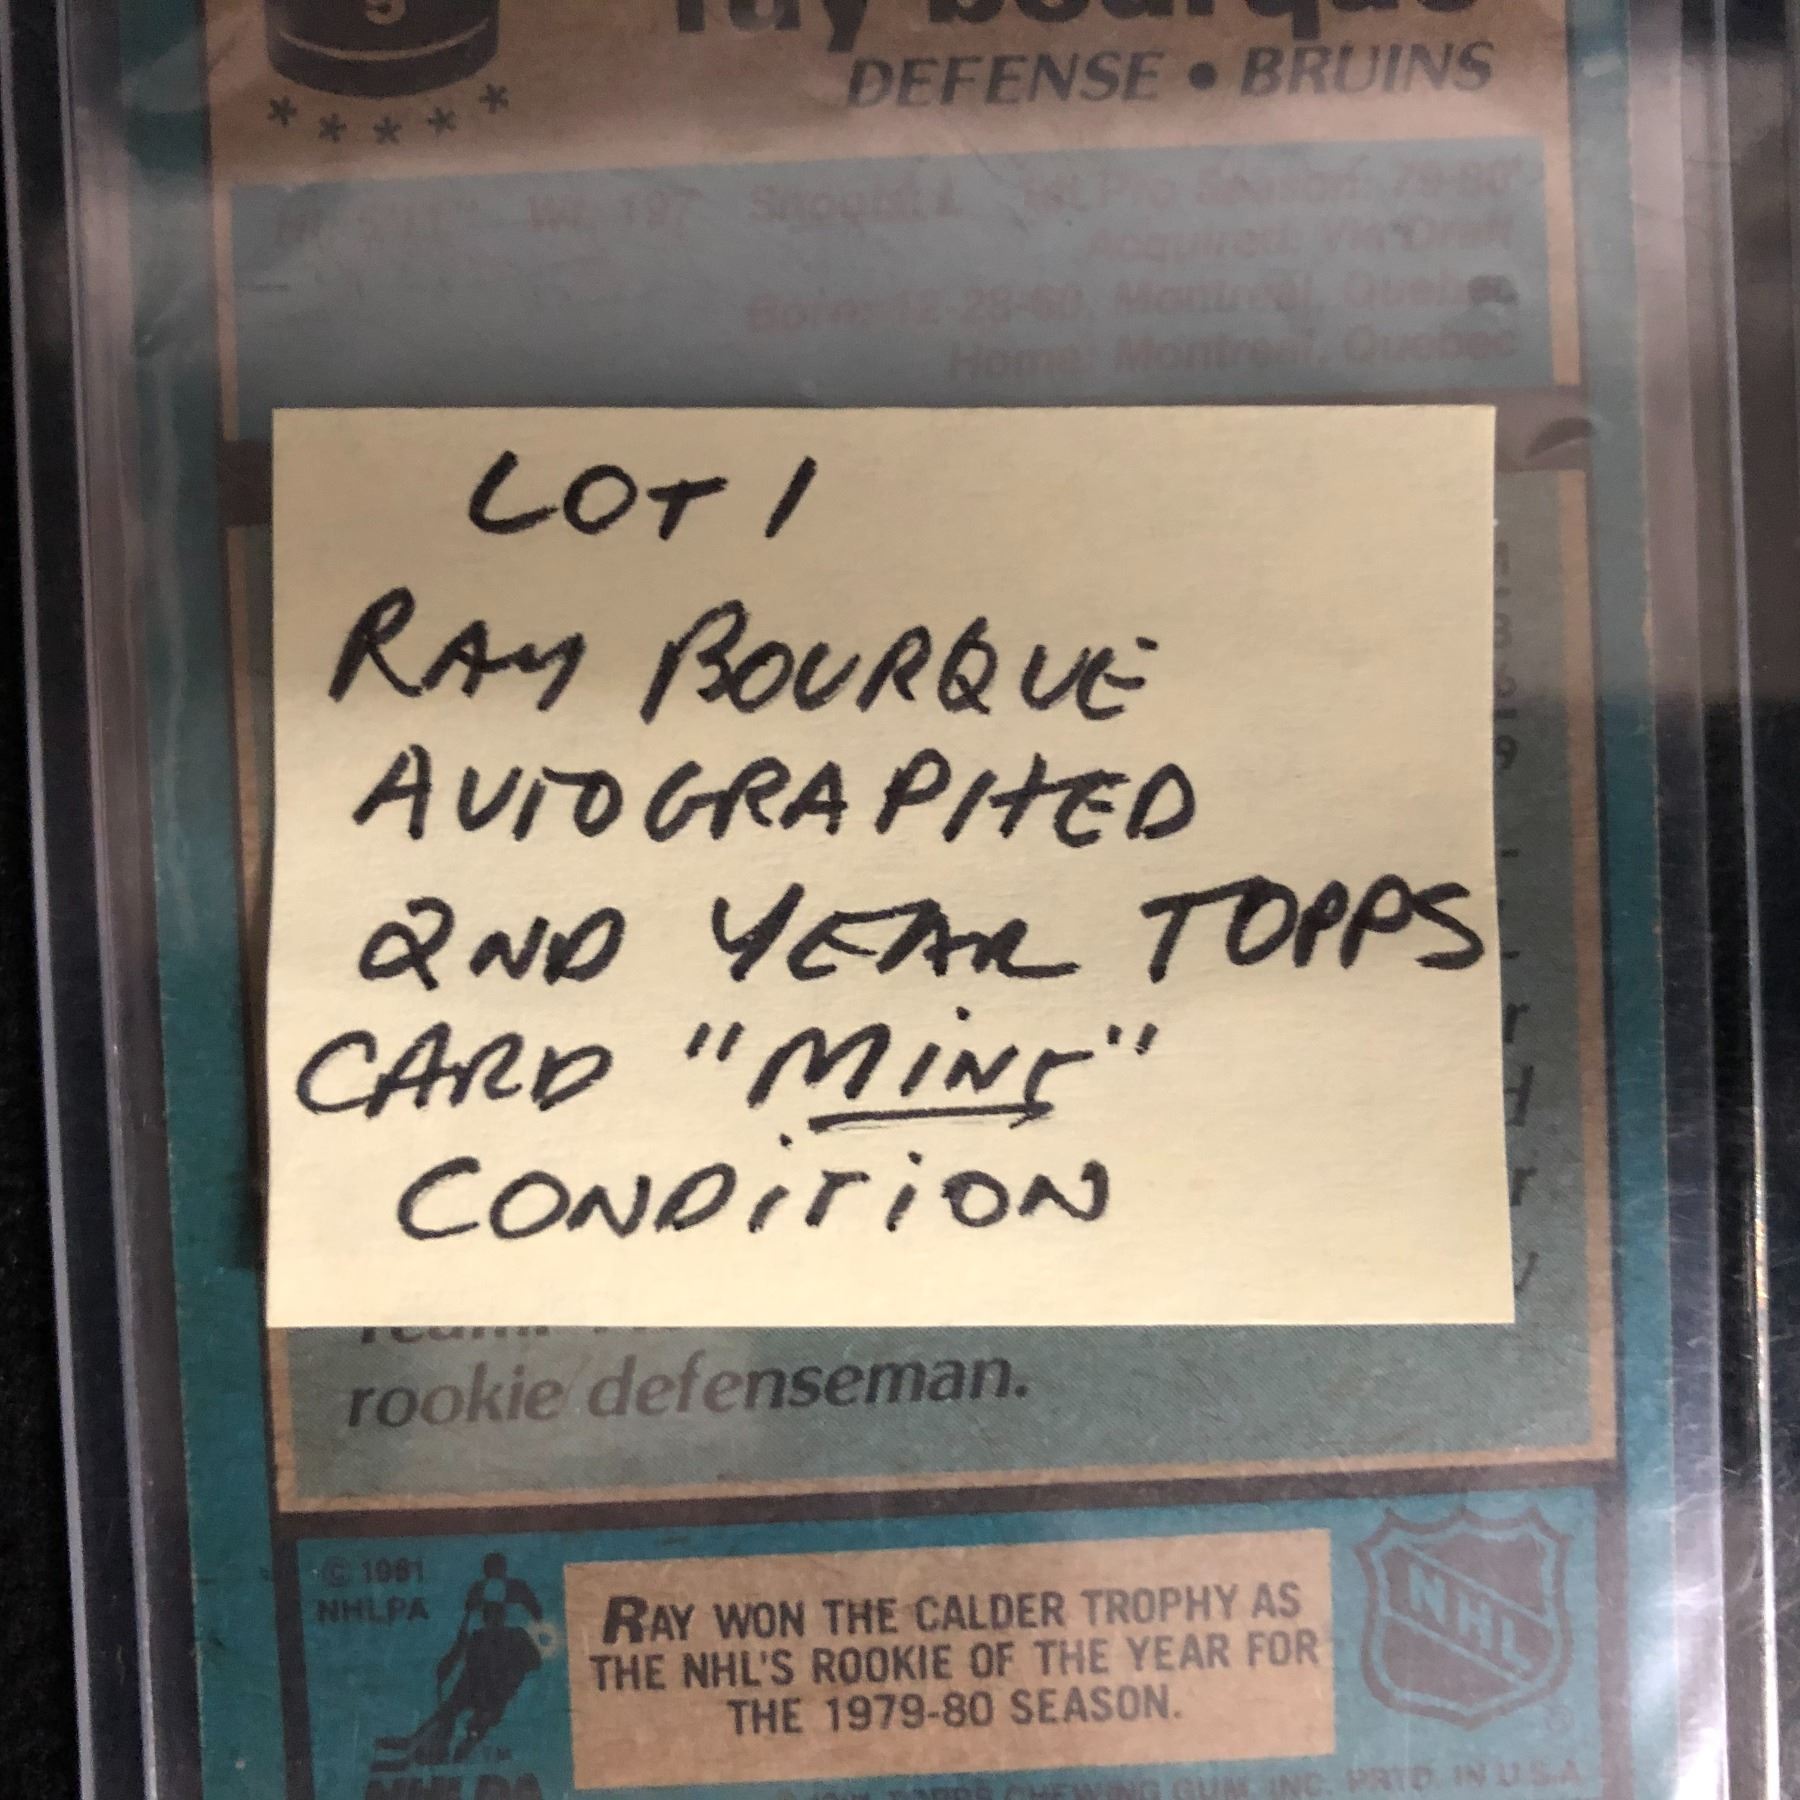 5
ray bourque
DEFENSE • BRUINS
Ht: 5'11" Wt: 197 Shoots: L 1st Pro Season: 79-80
Acquired: Via Draft
Born: 12-28-60, Montreal, Quebec
Home: Montreal, Quebec
LOT 1
RAY BOURQUE
AUTOGRAPHED
2ND YEAR TOPPS
CARD "MINT"
CONDITION
rookie defenseman.
© 1981
NHLPA
RAY WON THE CALDER TROPHY AS
THE NHL'S ROOKIE OF THE YEAR FOR
THE 1979-80 SEASON.
NHL
®
TM
NHLPA
TOPPS CHEWING GUM, INC. PRTD. IN U.S.A.